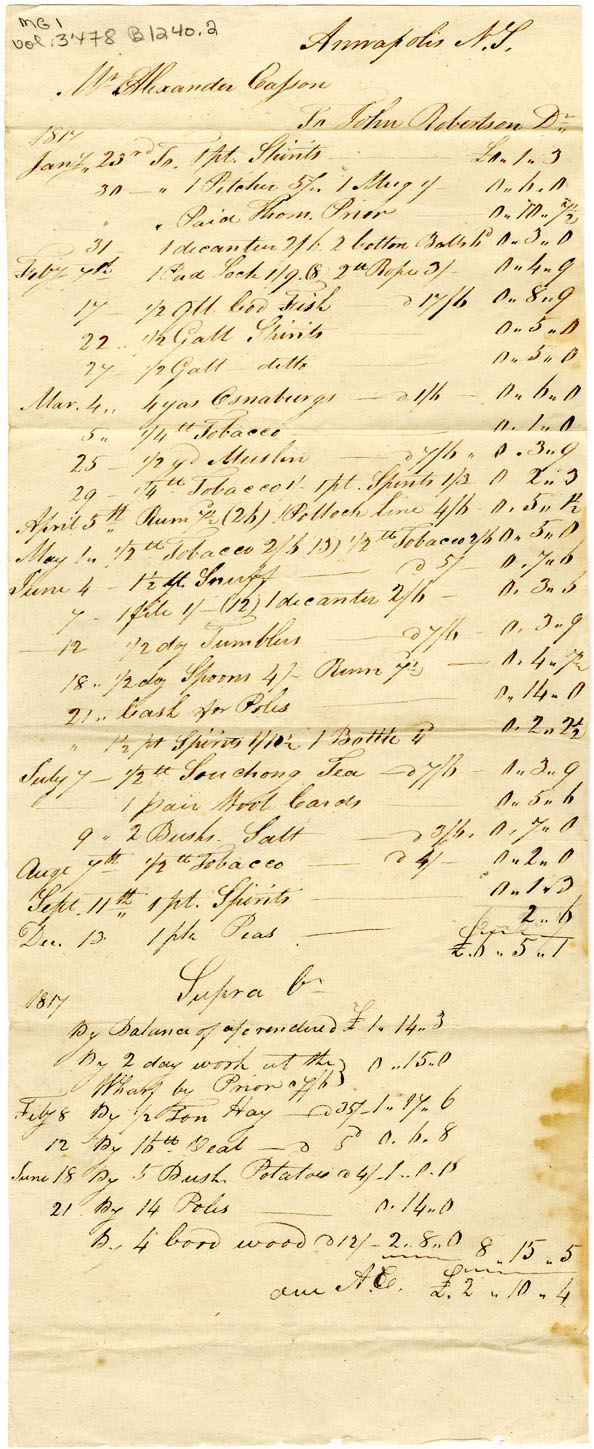 MG1
vol. 3478 B1240.2
Annapolis N.S.
Mr. Alexander Casson
To John Robertson Dr
1817
Jany 23rd To 1 pt. Spirits £0 " 1 " 3
30 - " 1 Pitcher 5/ " 1 Mug 1/ 0 " 6 " 0
" " Paid Thom. Prior 0 " 10 " 7½
31 - 1 decanter 2/6 2 botton Balls 6d 0 " 3 " 0
Feby 7th 1 Pad Lock 1/9 (8) 2 lb Rope 3/- 0 " 4 " 9
17 - 1/2 Qtl Cod Fish @ 17/6 0 " 8 " 9
22 " 1/2 Gall Spirits 0 " 5 " 0
27 - 1/2 Gall ditto 0 " 5 " 0
Mar. 4 " 4 yds Osnaburgs @ 1/6 - 0 " 6 " 0
5 " 1/4 lb Tobacco 0 " 1 " 0
25 - 1/2 yd Muslin @ 7/6 " 0 " 3 " 9
29 - 1/4 lb Tobacco 1/- 1 pt. Spirits 1/3 0 " 2 " 3
April 5th Rum 7½ (26) 1 Polloch Line 4/6 - 0 " 5 " 1½
May 1 " 1/2 lb Tobacco 2/6 13) 1/2 lb Tobacco 2/6 0 " 5 " 0
June 4 - 1½ lb Snuff @ 5/ 0 " 7 " 6
7 - 1 file 1/- (12) 1 decanter 2/6 - 0 " 3 " 6
12 1/2 dz Tumblers @ 7/6 - 0 " 3 " 9
18 " 1/2 dz Spoons 4/- Rum 7½ 0 " 4 " 7½
21 " Cash for Poles 0 " 14 " 0
" 1½ pt Spirits 1/10½ 1 Bottle 4d 0 " 2 " 2½
July 7 - 1/2 lb Souchong Tea @ 7/6 - 0 " 3 " 9
1 pair Wool Cards 0 " 5 " 6
9 " 2 Bush. Salt @ 3/6 " 0 " 7 " 0
Augt 7th 1/2 lb Tobacco @ 4/- 0 " 2 " 0
Sept. 11th 1 pt. Spirits 0 " 1 " 3
Dec. 13 1 pk Peas 2 " 6
£ 6 " 5 " 1
1817 Supra Cr
By Balance of a/c rendered £ 1 " 14 " 3
By 2 day work at the } 0 " 15 " 0
Wharf by Prior @ 7/6 }
Feby 8 By 1/2 Ton Hay @ 35/ 1 " 17 " 6
12 By 16 lb Veal @ 5d 0 " 6 " 8
June 18 By 5 Bush Potatoes @ 4/- 1 " 0 " 0
21 By 14 Poles 0 " 14 " 0
By 4 Coord wood @ 12/- 2 " 8 " 0 8 " 15 " 5
due A.C. £ 2 " 10 " 4